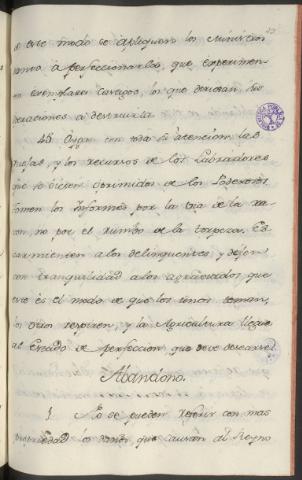 este modo se apliquen los Ministros
a perfeccionarlos, que experimen
exemplares castigos, los que devieran sus
operaciones a destruirla.
45 Oygan con toda la atencion las
quejas, y los recursos de los Labradores
que se vieren oprimidos de los Poderosos
tomen los informes por la via de la ra-
con, no por el rumbo de la torpeza. Es-
carmienten a los delinquentes, y dejen
con tranquilidad a los agraviados que
este es el modo de que los unos teman,
los otros respiren, y la Agricultura llegue
al Estado de perfeccion, que deve desearse.
Abandono.
1. No se pueden referir con mas
propiedad los daños, que causan al Reyno